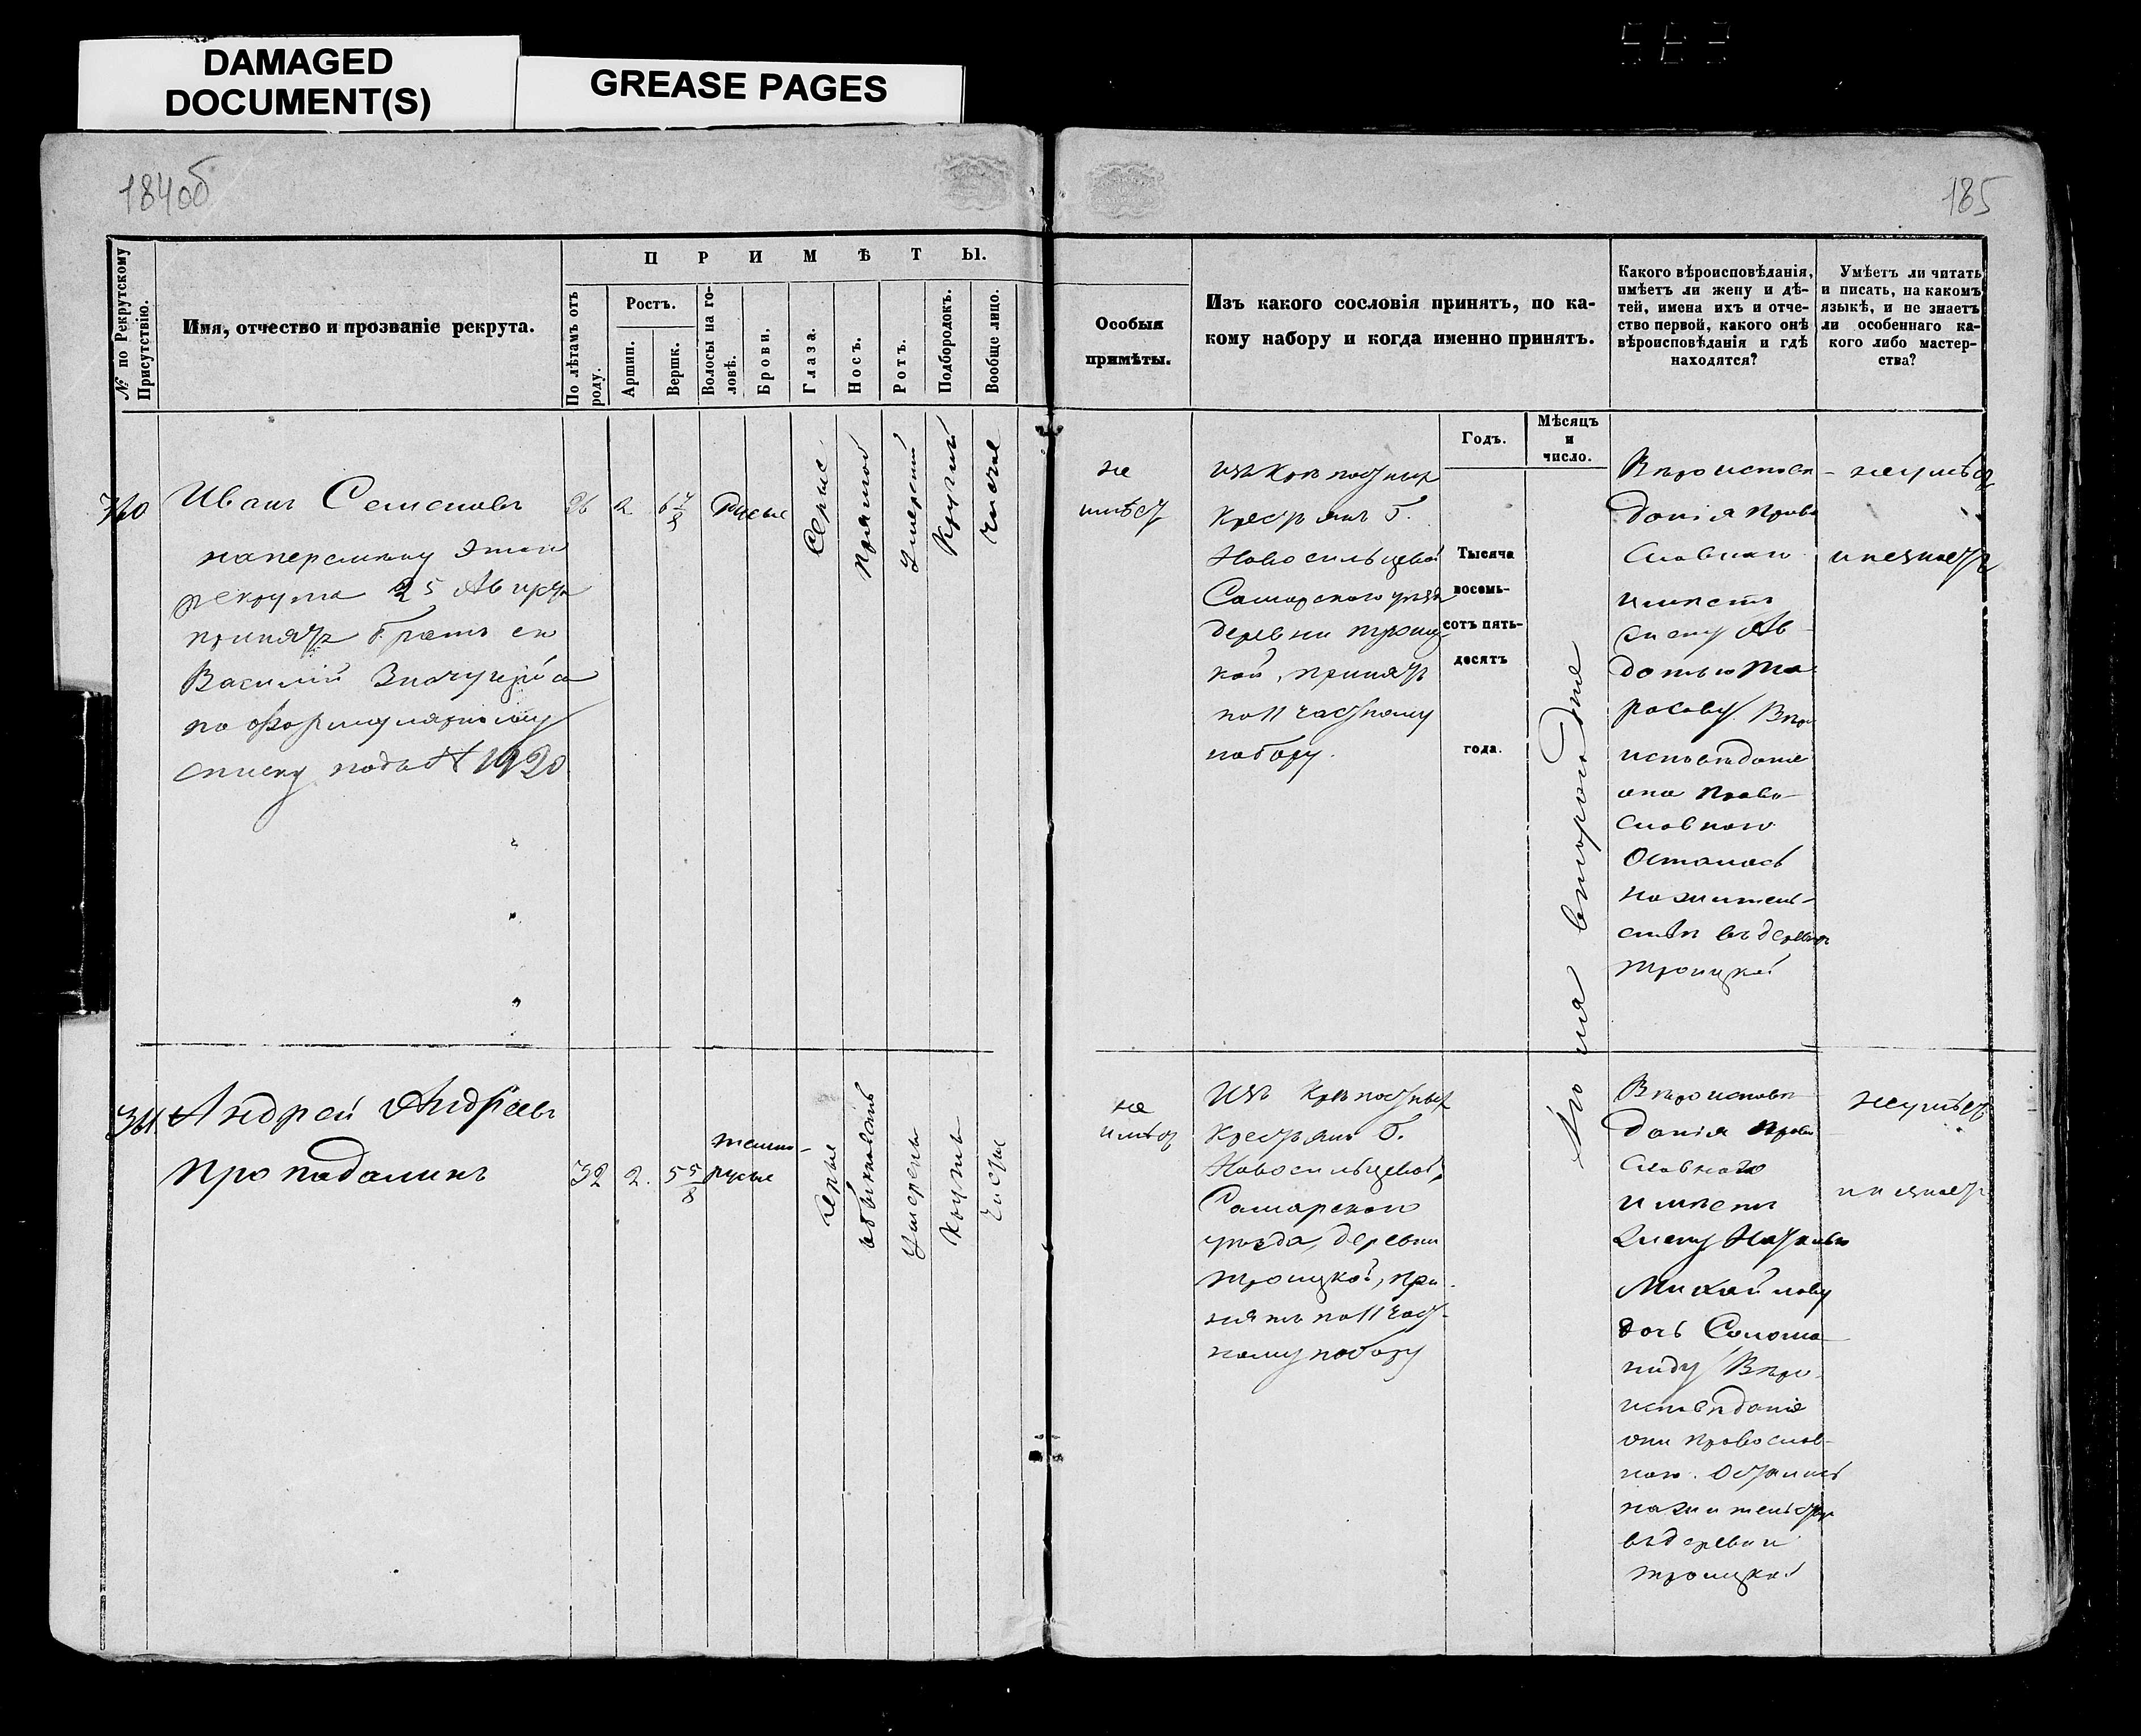 DAMAGED
DOCUMENT(S)
GREASE PAGES
184об
185
№ по Рекрутскому Присутствію.
Имя, отчество и прозваніе рекрута.
ПРИМѢТЫ.
По лѣтамъ отъ роду.
Ростъ.
Аршин.
Вершк.
Волосы на головѣ.
Брови.
Глаза.
Носъ.
Ротъ.
Подбородокъ.
Вообще лицо.
Особыя
примѣты.
Изъ какого сословія принятъ, по ка-
кому набору и когда именно принятъ.
Какого вѣроисповѣданія,
имѣетъ ли жену и дѣ-
тей, имена ихъ и отче-
ство первой, какого онѣ
вѣроисповѣданія и гдѣ
находятся?
Умѣетъ ли читать
и писать, на какомъ
языкѣ, и не знаетъ
ли особеннаго ка-
кого либо мастер-
ства?
Годъ.
Мѣсяцъ
и
число.
Иванъ Семеновъ
рекрута 25 Августа
принятъ братъ его
Василий
по формулярному
списку подъ № 1920
26
2
6 7/8
Русые
Серые
Прямой
Умеренный
Круглый
Чистое
не
имѣет
изъ Крѣпостных
Крестьянъ Г.
Новосильцевой
Самарского уезда
деревни Троиц
кой, принятъ
по 11 частному
набору.
Тысяча
восемь-
сотъ пять-
десятъ
года.
втораго дня
Вѣроисповѣ
данія Право
славнаго
имѣетъ
Жену Ав
дотью Та
расову Вѣро
исповѣданія
она Право-
славного
Осталась
на житель-
ствѣ въ деревнѣ
Троицкой
неумѣет
и незнаетъ
341
Андрей Андреевъ
Пропадалинъ
32
2.
5 5/8
темно-
русые
Серые
обыкновенъ
Умеренъ
Круглъ
не
имѣет
Изъ Крѣпостных
Крестьянъ Г.
Новосильцевой,
Самарского
уѣзда, деревни
Троицкой, при
нятъ по 11 част-
ному набору
Вѣроисповѣ
данія Право
славного
имѣетъ
Жену Наталью
Михайлову
дочь Солома
ниду Вѣро-
исповѣданія
они православ-
ного. Остались
на жительствѣ
въ деревни
Троицкой
неумѣетъ
и не знаетъ